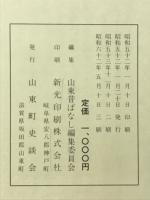 昭和五十二年一月十日 印刷
昭和五十二年一月二十日 発行
昭和五十三年十二月 二刷
昭和六十二年五月十日 三刷
定価 一、〇〇〇円
編集 山東昔ばなし編集委員会
印刷 新光印刷株式会社
岐阜県安八郡神戸町
発行 山東町史談会
滋賀県坂田郡山東町